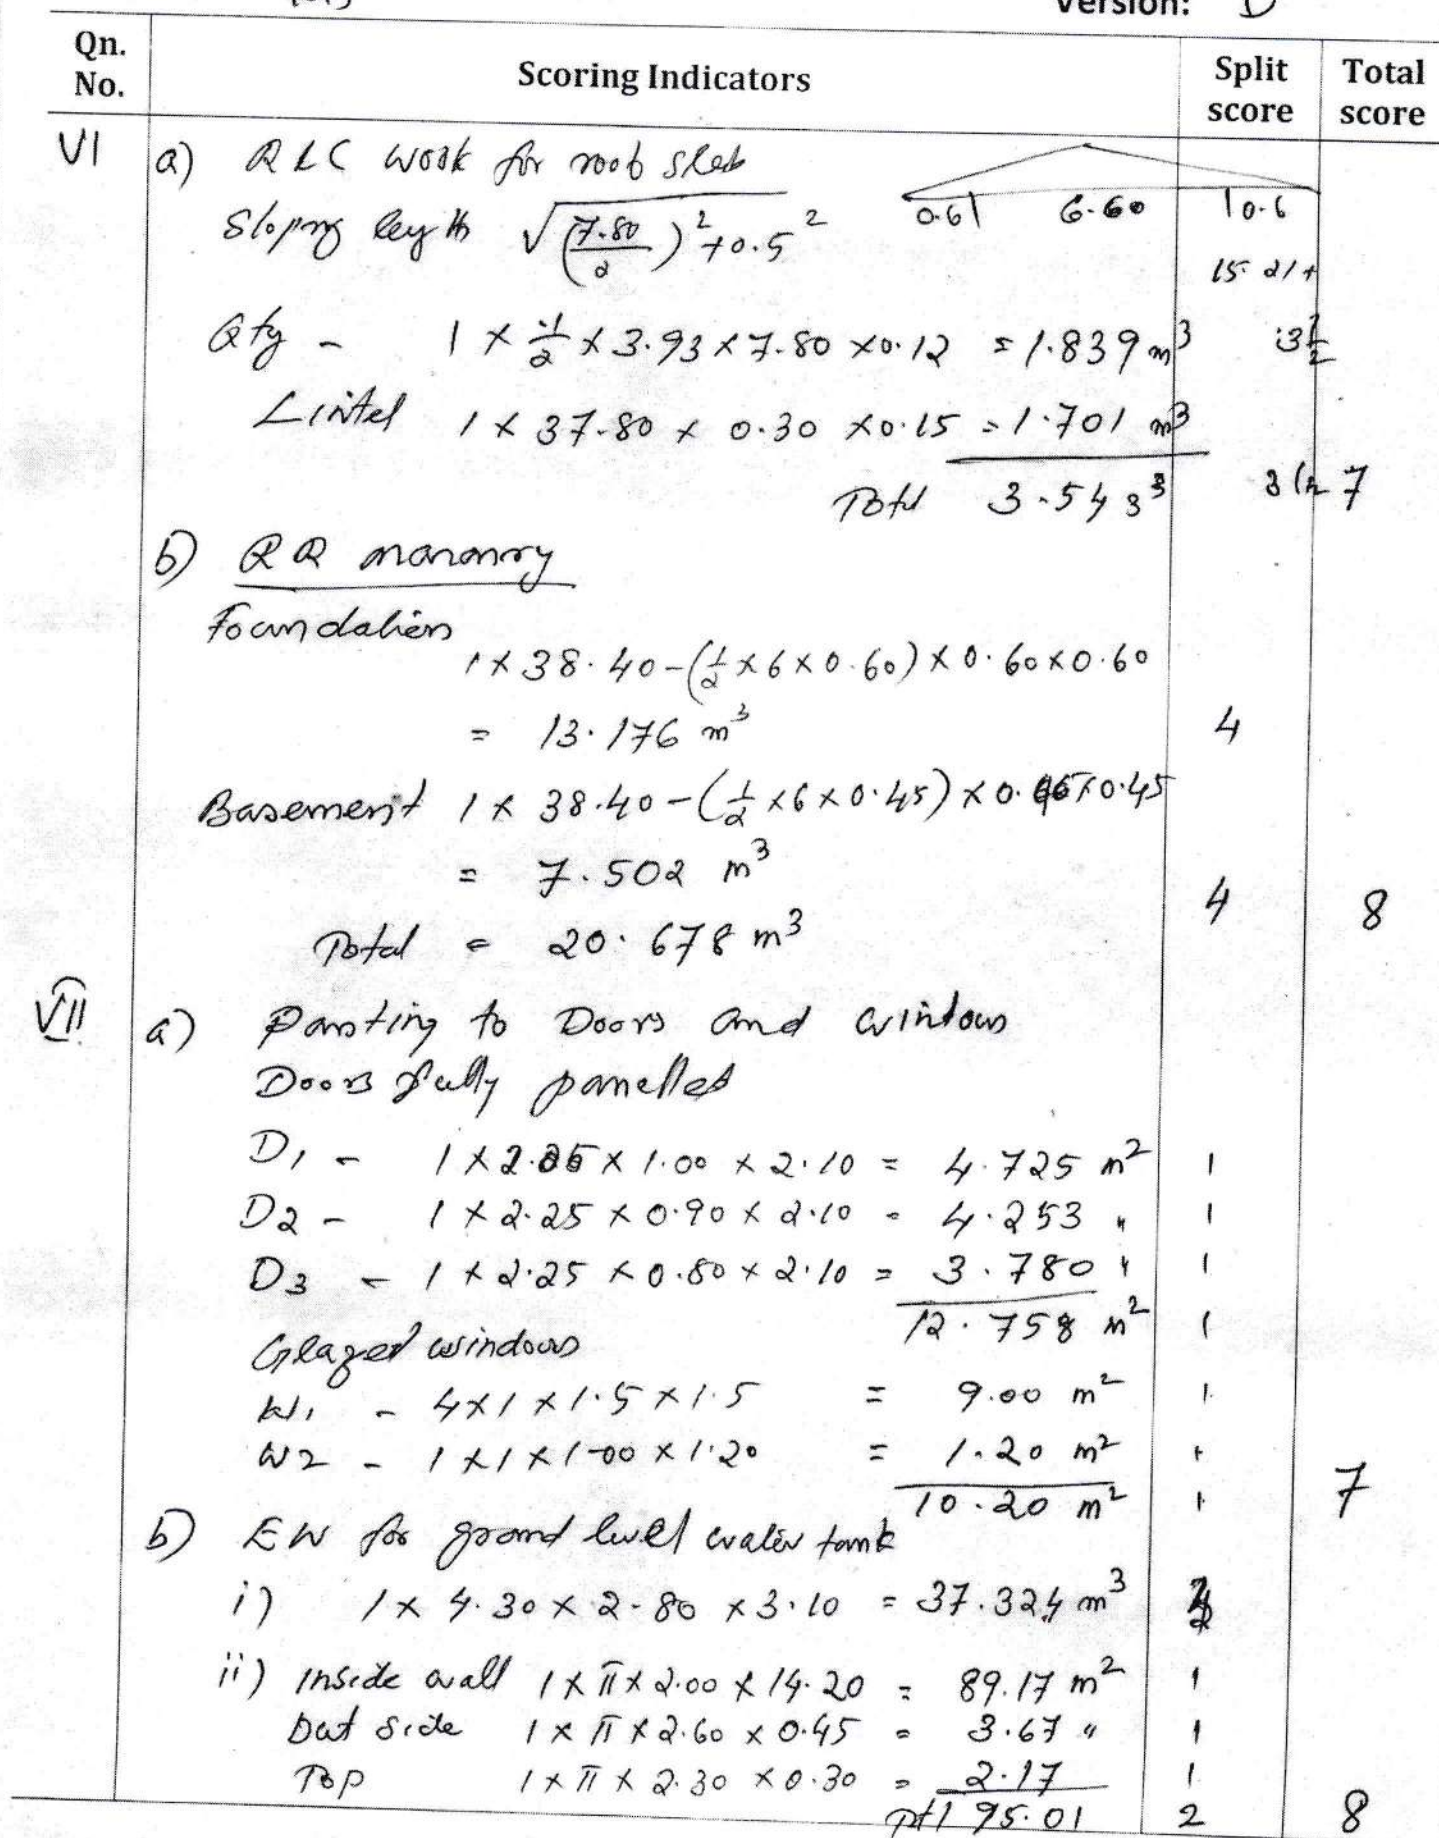 Version: D
Qn. No. Scoring Indicators Split score Total score
VI a) RCC work for roof slab
Sloping length √(7.80/2)² + 0.5²
0.6 6.60 0.6
Qty - 1 × 1/2 × 3.93 × 7.80 × 0.12 = 1.839 m³ 3 1/2
Lintel 1 × 37.80 × 0.30 × 0.15 = 1.701 m³
Total 3.543³ 3 1/2 7
b) RR masonry
Foundation
1 × 38.40 - (1/2 × 6 × 0.60) × 0.60 × 0.60
= 13.176 m³ 4
Basement 1 × 38.40 - (1/2 × 6 × 0.45) × 0.45 × 0.45
= 7.502 m³
4 8
Total = 20.678 m³
VII a) Painting to Doors and windows
Doors fully panelled
D1 - 1 × 2.25 × 1.00 × 2.10 = 4.725 m² 1
D2 - 1 × 2.25 × 0.90 × 2.10 = 4.253 " 1
D3 - 1 × 2.25 × 0.80 × 2.10 = 3.780 " 1
12.758 m² 1
Glazed windows
W1 - 4 × 1 × 1.5 × 1.5 = 9.00 m² 1
W2 - 1 × 1 × 1.00 × 1.20 = 1.20 m² 1
10.20 m² 1 7
b) EW for ground level water tank
i) 1 × 4.30 × 2.80 × 3.10 = 37.324 m³
ii) Inside wall 1 × π × 2.00 × 14.20 = 89.17 m² 1
Out side 1 × π × 2.60 × 0.45 = 3.67 " 1
Top 1 × π × 2.30 × 0.30 = 2.17 1
95.01 2 8